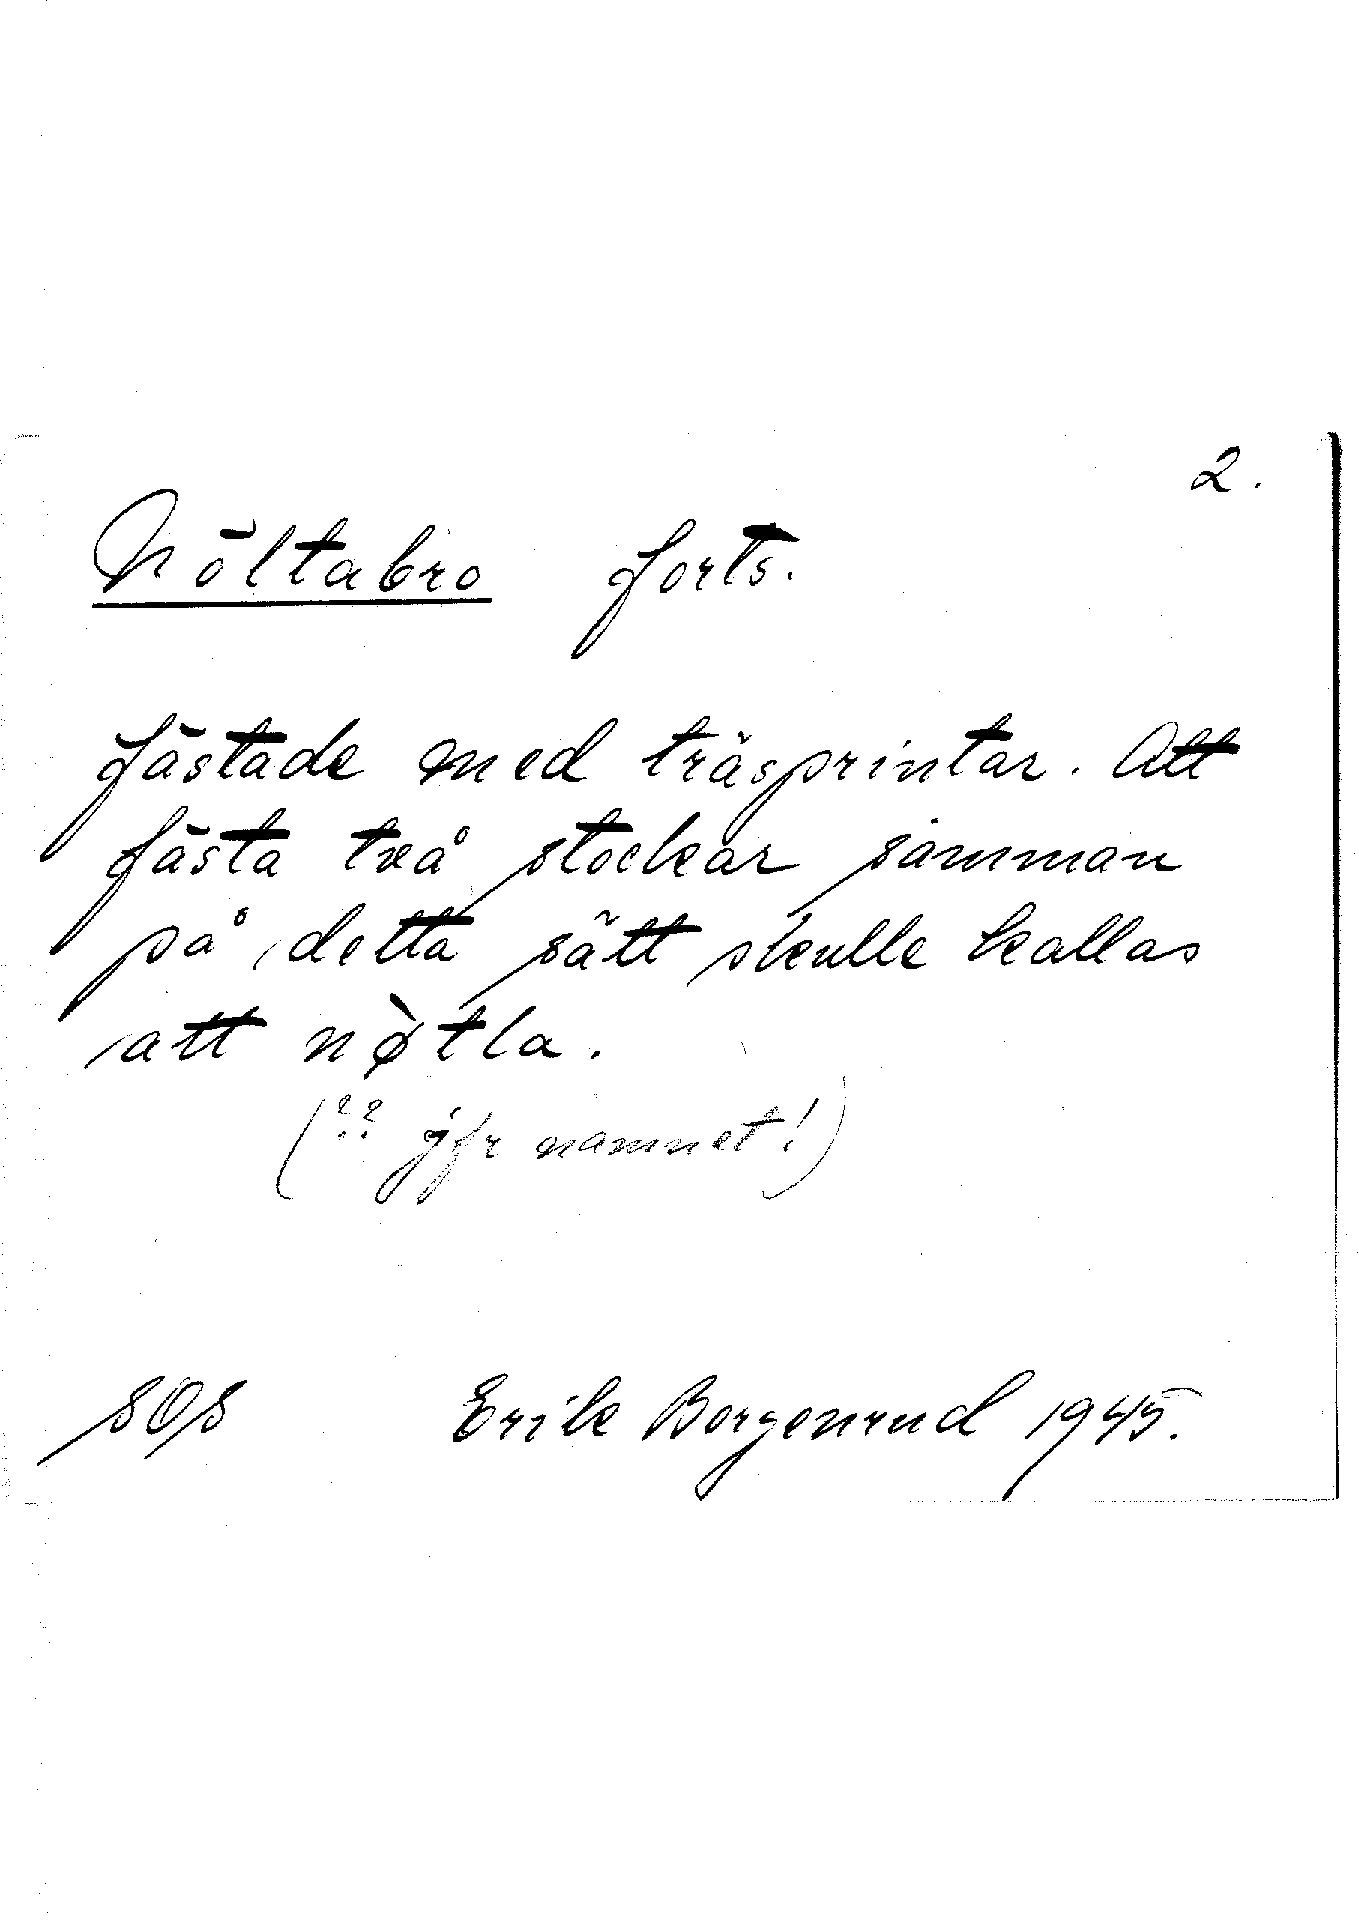 2.
Nöltabro forts.
fästade med träsprintar. Att
fästa två stockar samman
på detta sätt skulle kallas
att nø̀tla.
(?? jfr namnet!)
SOS Erik Borgenrud 1945.